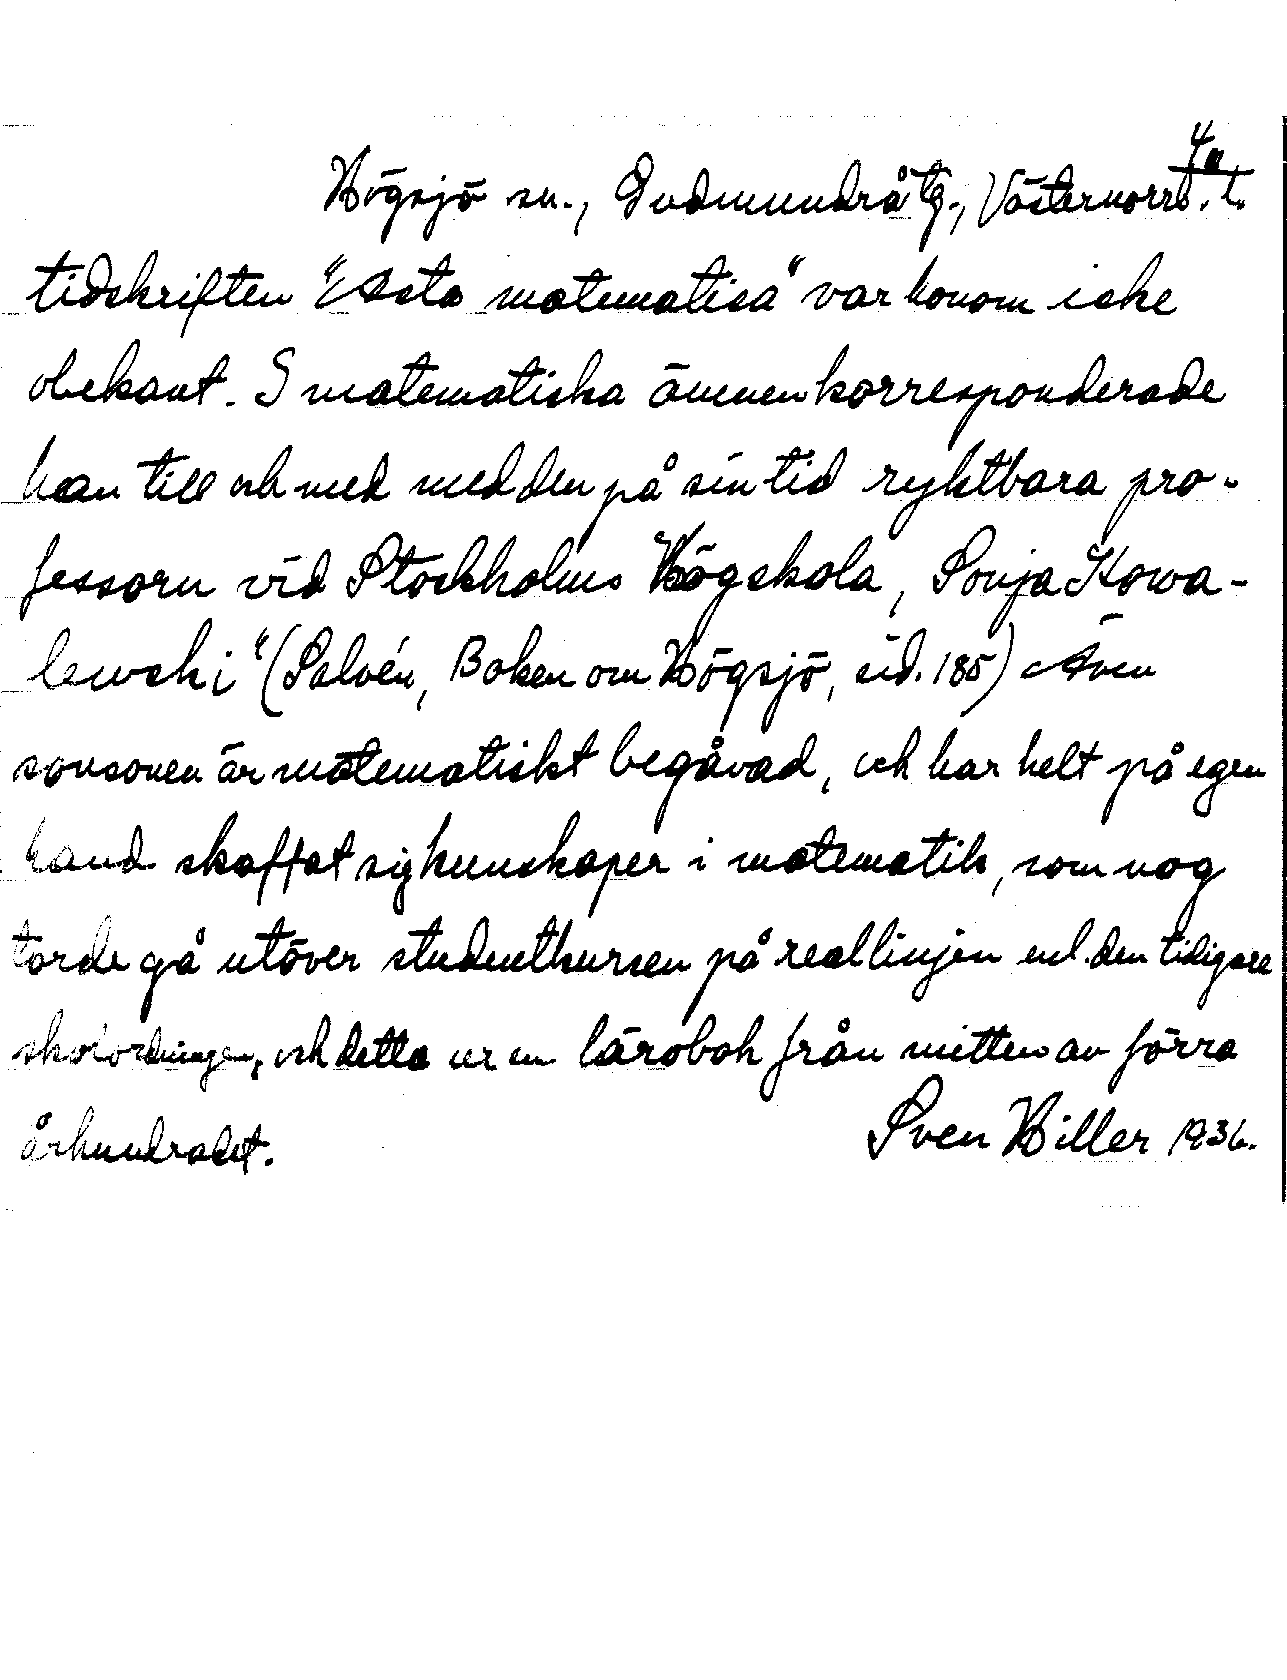 4.
Högsjö sn., Gudmundrå tg., Västernorrl. l.
tidskriften "Acta matematica" var honom icke
obekant. I matematiska ämnen korresponderade
han till och med med den på sin tid ryktbara pro-
fessorn vid Stockholms Högskola, Sonja Kowa-
lewski" (Salvén, Boken om Högsjö, sid. 185) Även
sonsonen är matematiskt begåvad, och har helt på egen
hand skaffat sig kunskaper i matematik, som nog
torde gå utöver studentkursen på reallinjen enl. den tidigare
skolordningen, och detta ur en lärobok från mitten av förra
århundradet. Sven Hiller 1936.